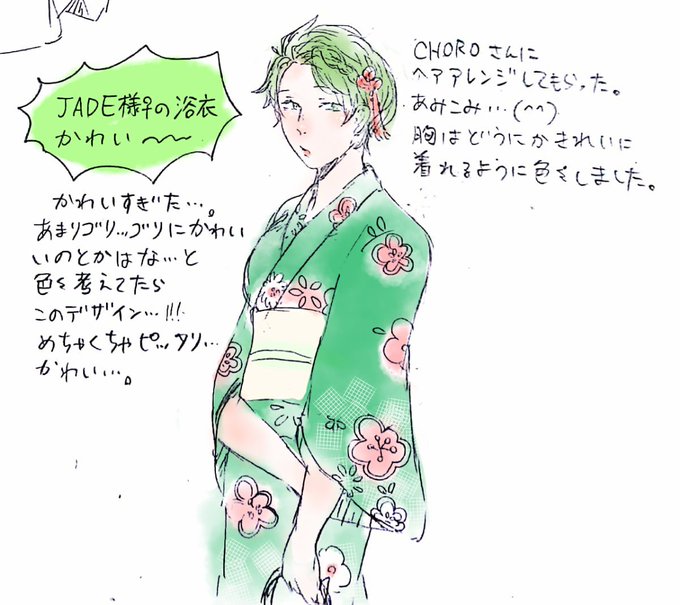 JADE様♀の浴衣
かわい〜〜
かわいすぎた…。
あまりゴリッゴリにかわい
いのとかはな…と
色々考えてたら
このデザイン…!!!
めちゃくちゃピッタリ…
かわい…。
CHOROさんに
ヘアアレンジしてもらった。
あみこみ…(^^)
胸はどうにかきれいに
着れるように色々しました。